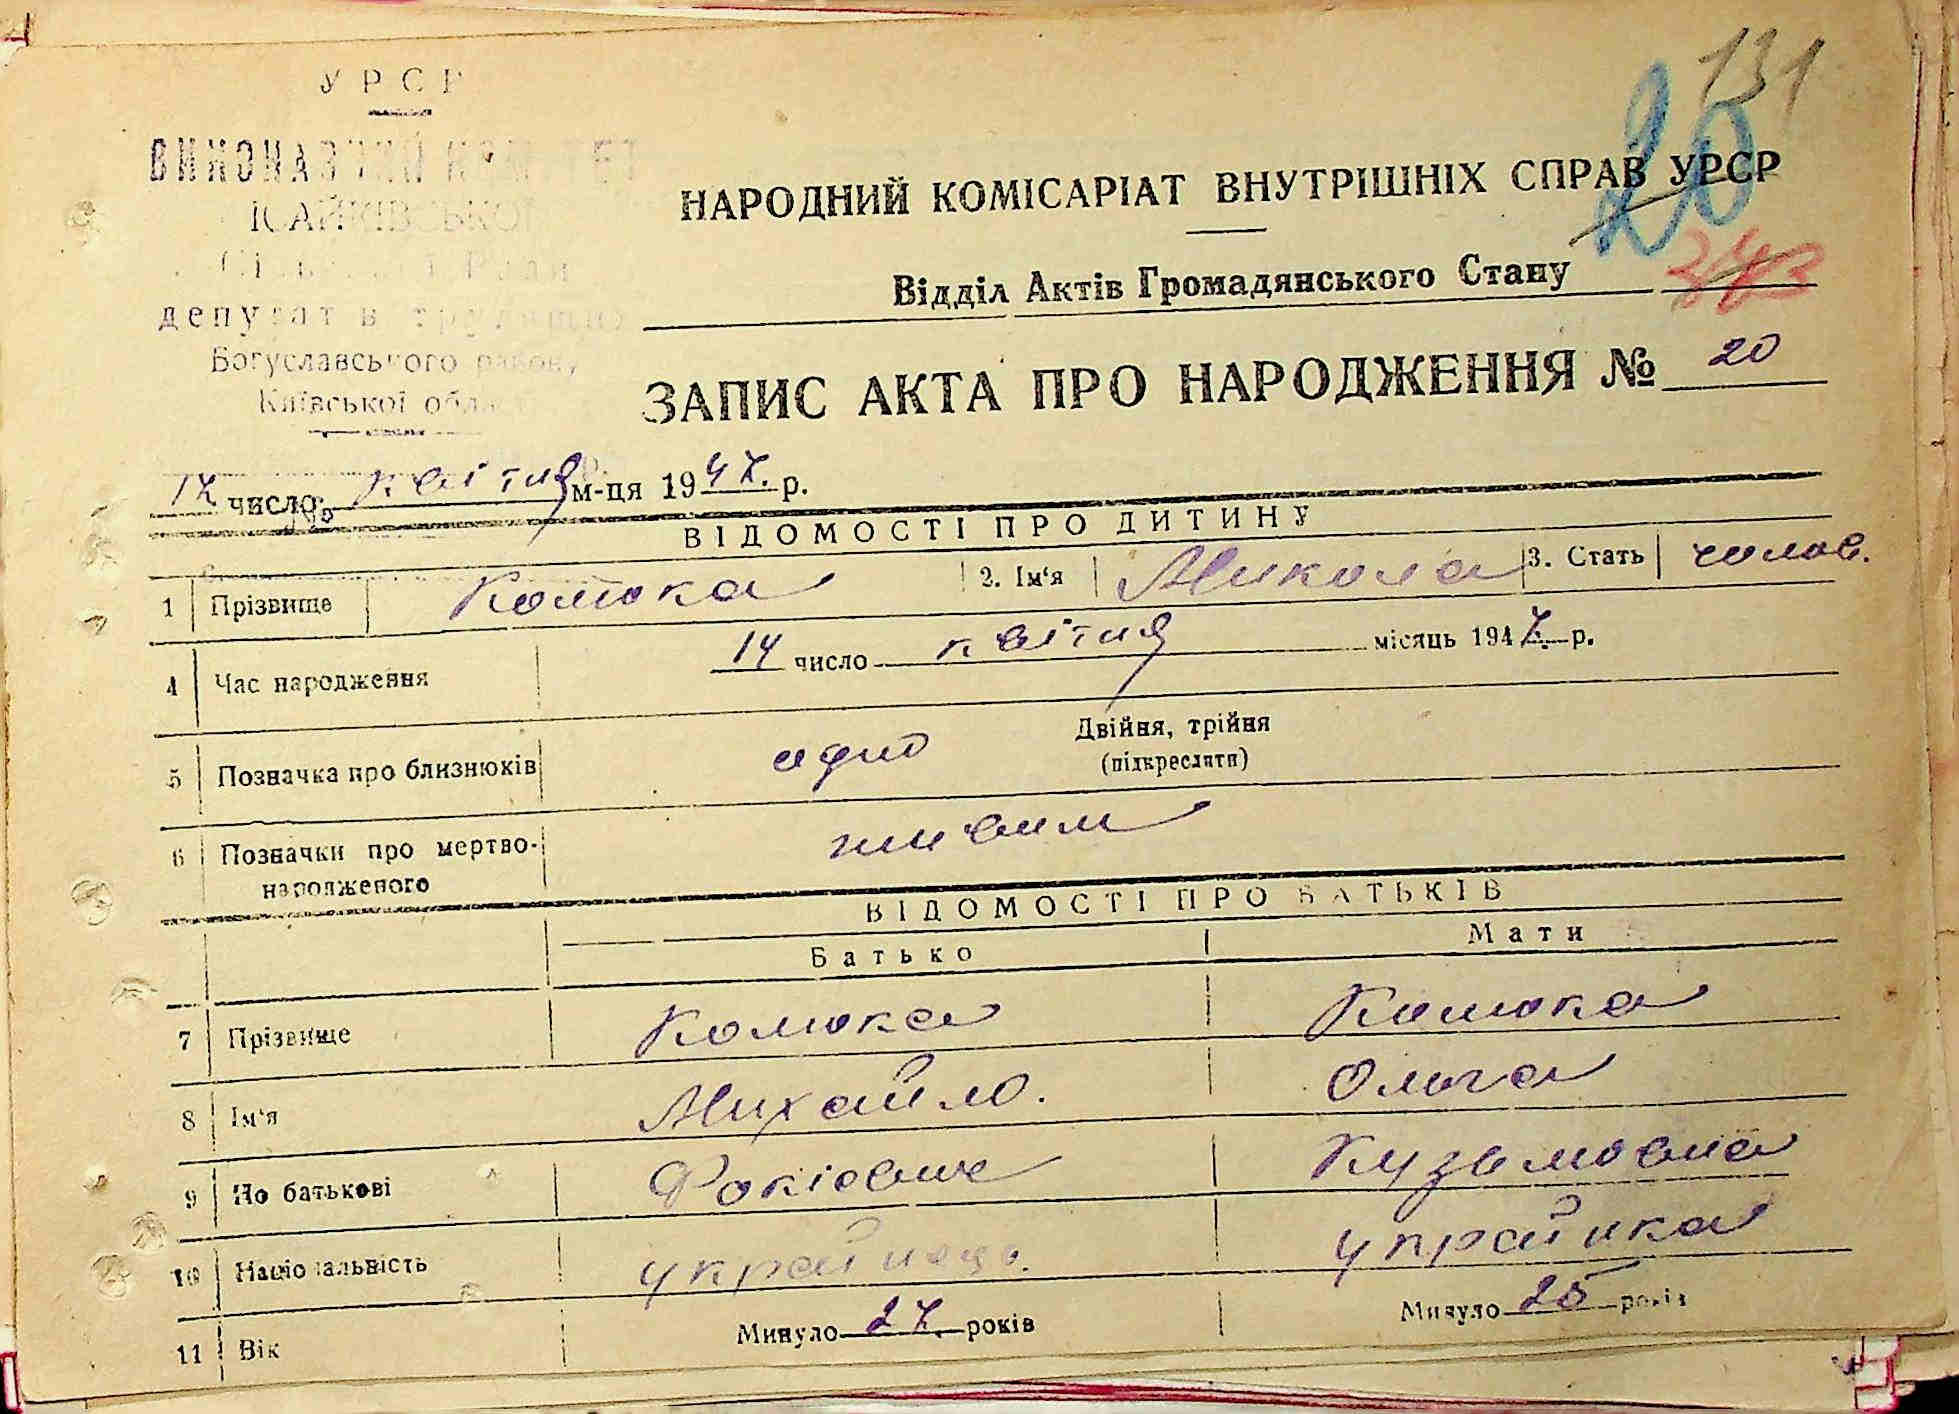 131
УРСР
ВИКОНАВЧИЙ КОМІТЕТ
ІСАЙКІВСЬКОЇ
Сільської Ради
депутатів трудящих
Богуславського району
Київської області
20
НАРОДНИЙ КОМІСАРІАТ ВНУТРІШНІХ СПРАВ УРСР
Відділ Актів Громадянського Стану
343
ЗАПИС АКТА ПРО НАРОДЖЕННЯ № 20
17 число квітня м-ця 1947. р.
ВІДОМОСТІ ПРО ДИТИНУ
1 Прізвище Комока 2. Ім‘я Микола 3. Стать чолов.
4 Час народження 14 число квітня місяць 1947. р.
5 Позначка про близнюків одно Двійня, трійня
(підкреслити)
6 Позначки про мертво-
народженого живим
ВІДОМОСТІ ПРО БАТЬКІВ
Батько Мати
7 Прізвище Комока Комока
8 Ім‘я Михайло. Ольга
9 По батькові Фокієвич Кузьмовна
10 Національність українець. українка
11 Вік Минуло 27. років Минуло 25 років